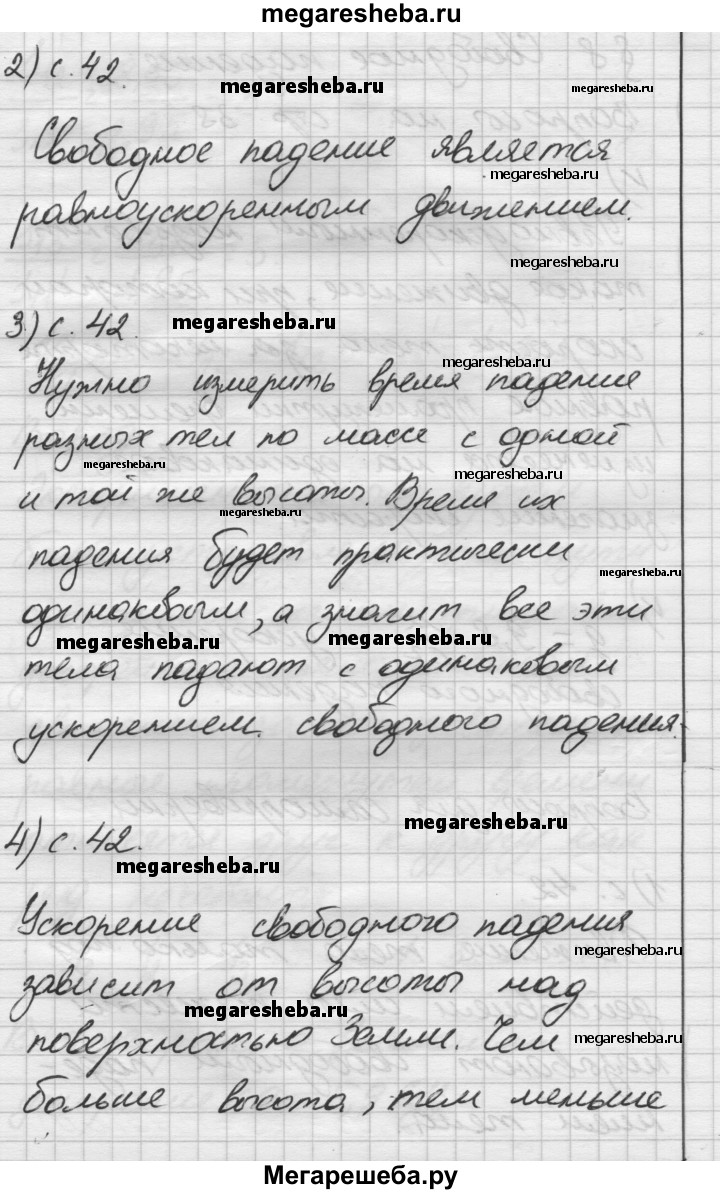 megaresheba.ru
2) с. 42.
megaresheba.ru
megaresheba.ru
Свободное падение является
megaresheba.ru
равноускоренным движением.
megaresheba.ru
3) с. 42.
megaresheba.ru
megaresheba.ru
Нужно измерить время падение
разных тел по массе с одной
megaresheba.ru
megaresheba.ru
и той же высоты. Время их
megaresheba.ru
падения будет практически
megaresheba.ru
одинаквоым, а значит все эти
megaresheba.ru
megaresheba.ru
тела падают с одинаковым
ускорением свободного падения.
megaresheba.ru
4) с. 42.
megaresheba.ru
Ускорение свободного падения
megaresheba.ru
зависит от высоты над
megaresheba.ru
поверхностью Земли. Чем
megaresheba.ru
больше высота, тем меньше
megaresheba.ru
Мегарешеба.ру